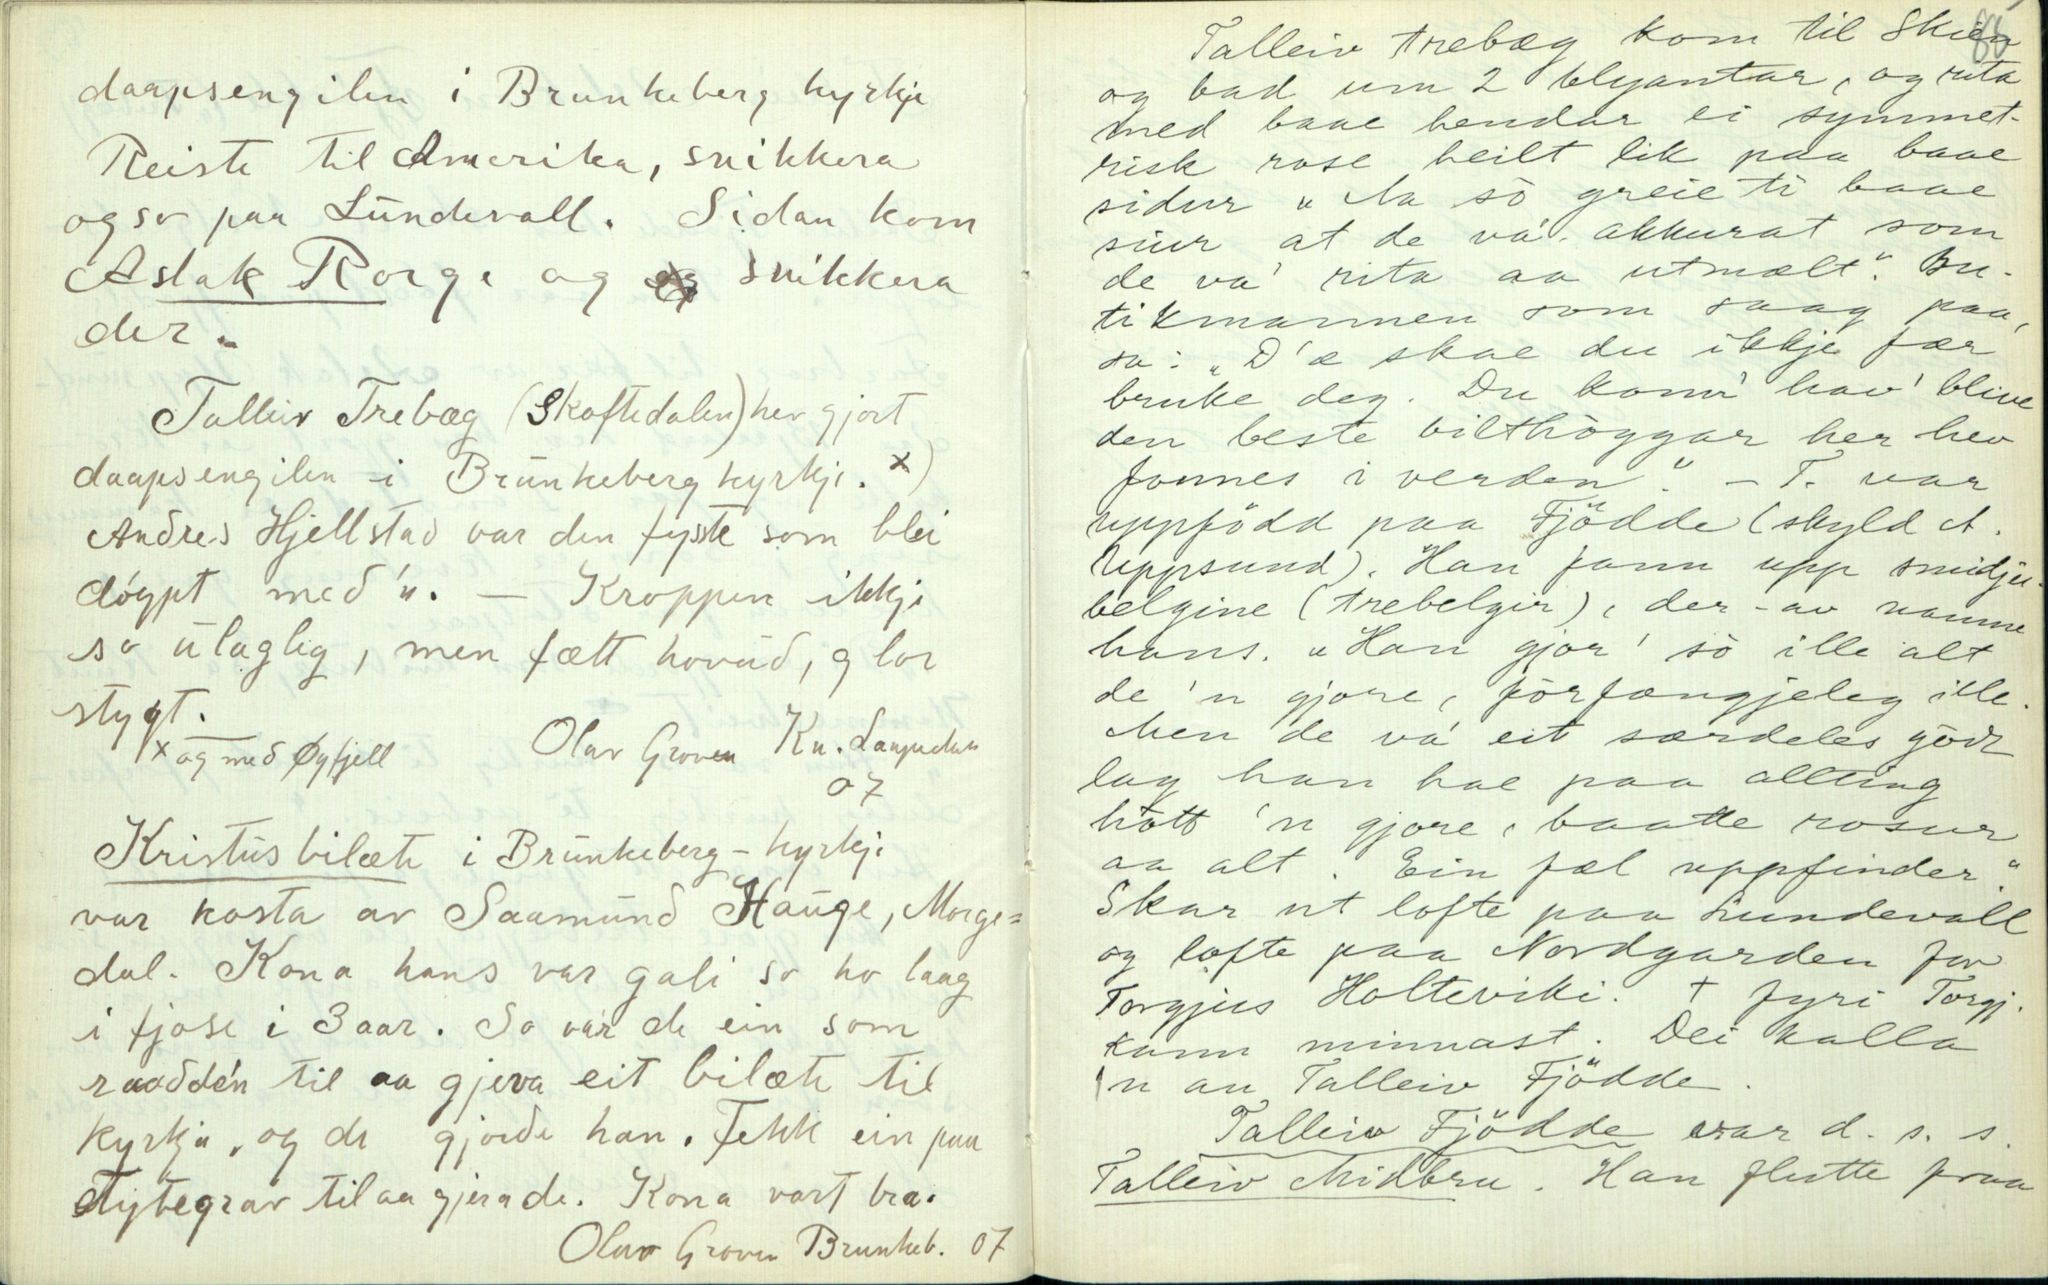 daapsengilen i Brunkeberg kyrkje
Reiste til Amerika, snikkera
ogso paa Lundevall. Sidan kom
Aslak Rorge og snikkera
der.
Talleiv Trebæg (Skoftedalen) hev gjort
daapsengilen i Brunkeberg kyrkje. x)
Andres Hjellstad var den fyste som blei
döypt med 'n. — Kroppen ikkje
so ulaglig, men fætt hovud, glor
stygt.
x og med Øyfjell
Olav Groven Kn. Laupedalen
07
Kristusbilæte i Brunkeberg-kyrkje
var kosta av Saamund Hauge, Morge=
dal. Kona hans var gali so ho laag
i fjose i 3 aar. So var de ein som
raadde'n til aa gjeva eit bilæte til
kyrkja, og de gjorde han. Fekk ein paa
Tytegrav til aa gjera de. Kona vart bra.
Olav Groven Brunkeb. 07
88
Talleiv trebæg kom til Skien
og bad um 2 blyantar, og rita
med baae hendar ei symmet-
risk rose heilt lik paa baae
sidur „Na sò greie ti baae
siur at de va' akkurat som
de va' rita aa utmælt". Bu-
tikmannen som saag paa,
sa: „D'æ skae du ikkje fær
bruke deg. Du konn' hav' blive
den beste bilthöggar her hev
fonnes i verden." — T. var
uppfödd paa Fjödde (skyld A.
Uppsund). Han fann upp smidju-
belgine (trebelgir), der-av namne
hans. „Han gjor' sò ille alt
de 'n gjore, förfængjeleg ille.
Men de va' eit særdeles godt
lag han hae paa allting
hòtt 'n gjore, baatte rosur
aa alt. Ein fæl uppfinder."
Skar ut lofte paa Lundevall
og lofte paa Nordgarden for
Torgjus Holteviki. † fyri Torgj.
kann minnast. Dei kalla
'n au Talleiv Fjödde.
Talleiv Fjödde var d. s. s.
Talleiv Midbru. Han flutte fraa